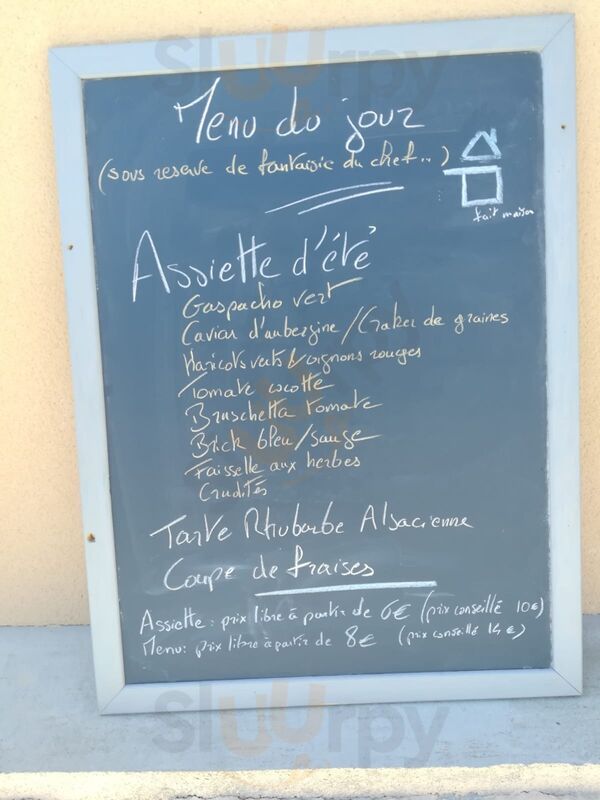 Sluurpy
Menu du jour
(sous reserve de fantaisie du chef...)
fait maison
Assiette d'été
Gaspacho vert
Caviar d'aubergine / Craker de graines
Haricots verts & oignons rouges
Tomate cocotte
Bruschetta tomate
Brick bleu/sauge
Faisselle aux herbes
Crudités
Tarte Rhubarbe Alsacienne
Coupe de fraises
Assiette : prix libre à partir de 6€ (prix conseillé 10€)
Menu: prix libre à partir de 8€ (prix conseillé 14€)
Sluurpy